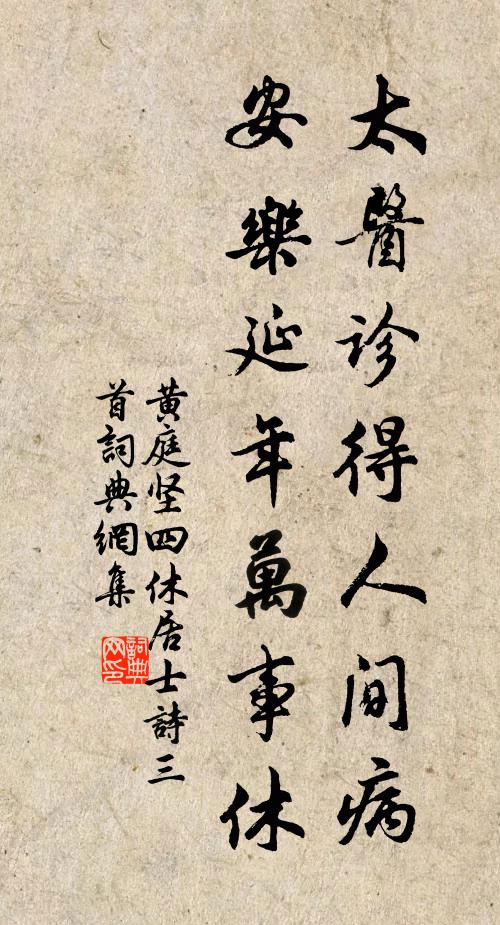 太醫診得人間病
安樂延年萬事休
黄庭坚四休居士詩三
首詞典網集
詞典
网印